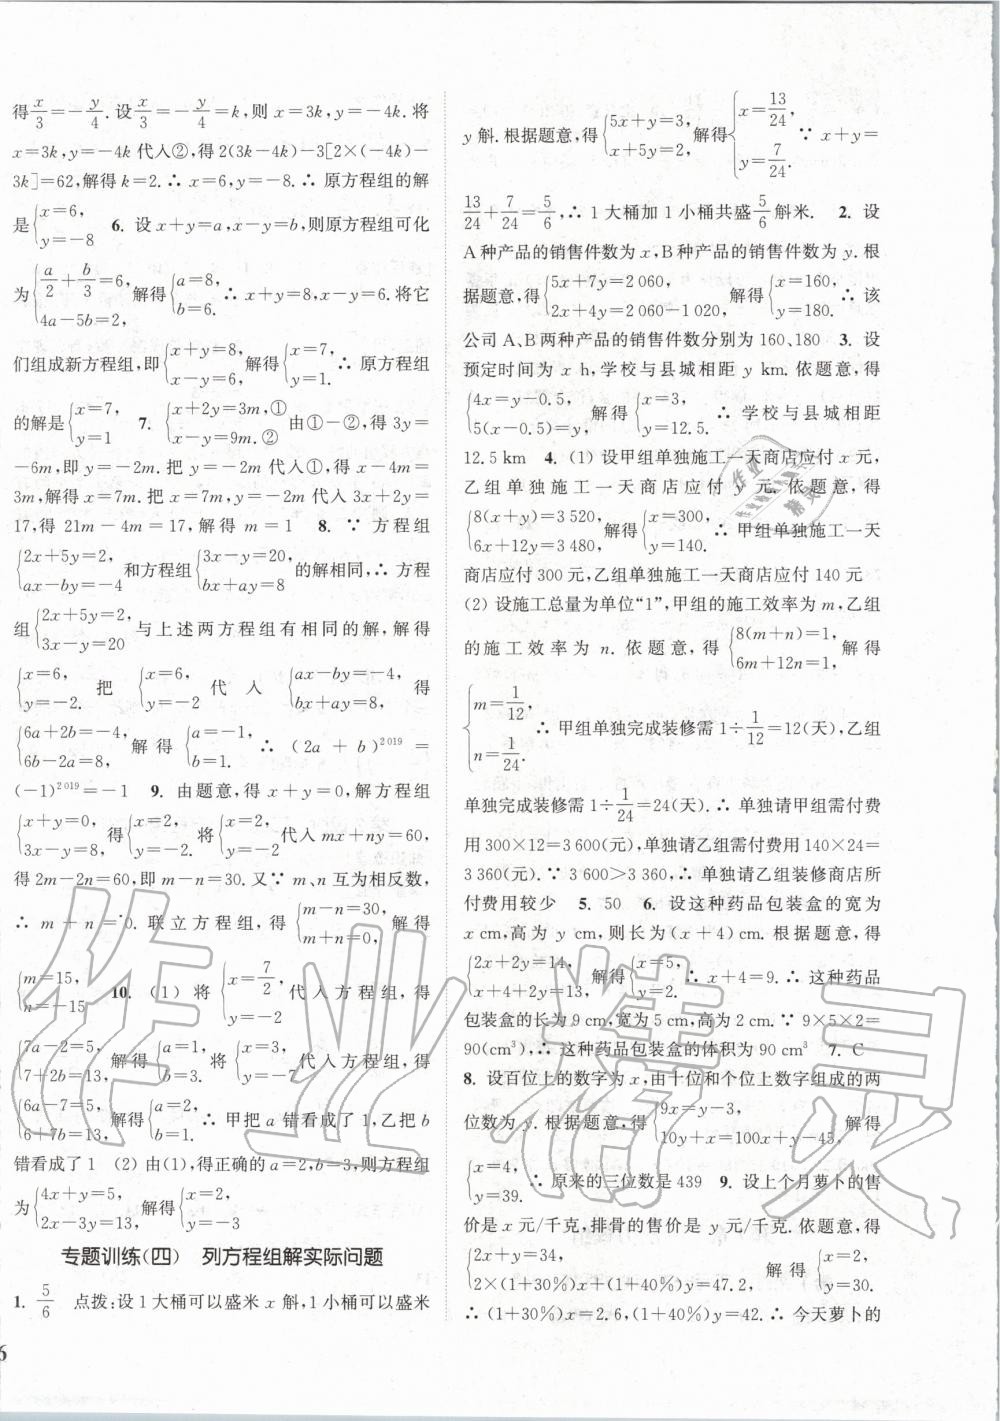 得x/3=-y/4.设x/3=-y/4=k,则x=3k,y=-4k.将
x=3k,y=-4k代入②,得2(3k-4k)-3[2×(-4k)-
3k]=62,解得k=2.∴x=6,y=-8.∴原方程组的解
是{x=6, y=-8 6. 设x+y=a,x-y=b,则原方程组可化
为{a/2+b/3=6, 4a-5b=2, 解得{a=8, b=6. ∴x+y=8,x-y=6.将它
们组成新方程组,即{x+y=8, x-y=6, 解得{x=7, y=1. ∴原方程组
的解是{x=7, y=1 7. {x+2y=3m,① x-y=9m.② 由①-②,得3y=
-6m,即y=-2m.把y=-2m代入①,得x-4m=
3m,解得x=7m.把x=7m,y=-2m代入3x+2y=
17,得21m-4m=17,解得m=1 8. ∵方程组
{2x+5y=2, ax-by=-4 和方程组{3x-y=20, bx+ay=8 的解相同,∴方程
组{2x+5y=2, 3x-y=20 与上述两方程组有相同的解,解得
{x=6, y=-2. 把{x=6, y=-2 代入{ax-by=-4, bx+ay=8, 得
{6a+2b=-4, 6b-2a=8, 解得{a=-1, b=1. ∴(2a+b)²⁰¹⁹=
(-1)²⁰¹⁹=-1 9. 由题意,得x+y=0,解方程组
{x+y=0, 3x-y=8, 得{x=2, y=-2. 将{x=2, y=-2 代入mx+ny=60,
得2m-2n=60,即m-n=30.又∵m、n互为相反数,
∴m+n=0.联立方程组,得{m-n=30, m+n=0, 解得
{m=15, n=-15 10. (1)将{x=7/2, y=-2 代入方程组,得
{7a-2=5, 7+2b=13, 解得{a=1, b=3. 将{x=3, y=-7 代入方程组,得
{6a-7=5, 6+7b=13, 解得{a=2, b=1. ∴甲把a错看成了1,乙把b
错看成了1 (2)由(1),得正确的a=2,b=3,则方程组
为{4x+y=5, 2x-3y=13, 解得{x=2, y=-3
专题训练(四) 列方程组解实际问题
1. 5/6 点拨:设1大桶可以盛米x斛,1小桶可以盛米
y斛.根据题意,得{5x+y=3, x+5y=2, 解得{x=13/24, y=7/24. ∵x+y=
13/24+7/24=5/6,∴1大桶加1小桶共盛5/6斛米. 2. 设
A种产品的销售件数为x,B种产品的销售件数为y.根
据题意,得{5x+7y=2 060, 2x+4y=2 060-1 020, 解得{x=160, y=180. ∴该
公司A、B两种产品的销售件数分别为160、180 3. 设
预定时间为x h,学校与县城相距y km.依题意,得
{4x=y-0.5, 5(x-0.5)=y, 解得{x=3, y=12.5. ∴学校与县城相距
12.5 km 4. (1)设甲组单独施工一天商店应付x元,
乙组单独施工一天商店应付y元.依题意,得
{8(x+y)=3 520, 6x+12y=3 480, 解得{x=300, y=140. ∴甲组单独施工一天
商店应付300元,乙组单独施工一天商店应付140元
(2)设施工总量为单位“1”,甲组的施工效率为m,乙组
的施工效率为n.依题意,得{8(m+n)=1, 6m+12n=1, 解得
{m=1/12, n=1/24. ∴甲组单独完成装修需1÷1/12=12(天),乙组
单独完成装修需1÷1/24=24(天).∴单独请甲组需付费
用300×12=3 600(元),单独请乙组需付费用140×24=
3 360(元).∵3 600>3 360,∴单独请乙组装修商店所
付费用较少 5. 50 6. 设这种药品包装盒的宽为
x cm,高为y cm,则长为(x+4)cm.根据题意,得
{2x+2y=14, x+4+2y=13, 解得{x=5, y=2. ∴x+4=9.∴这种药品
包装盒的长为9 cm,宽为5 cm,高为2 cm.∵9×5×2=
90(cm³),∴这种药品包装盒的体积为90 cm³ 7. C
8. 设百位上的数字为x,由十位和个位上数字组成的两
位数为y.由题意,得{9x=y-3, 10y+x=100x+y-45, 解得
{x=4, y=39. ∴原来的三位数是439 9. 设上个月萝卜的售
价是x元/千克,排骨的售价是y元/千克.依题意,得
{2x+y=37.2, 2×(1+30%)x+(1+25%)y=47.2. 解得{x=2, y=33.2.
∴(1+30%)x=2.6,(1+25%)y=41.5.∴今天萝卜的
6
作业精灵